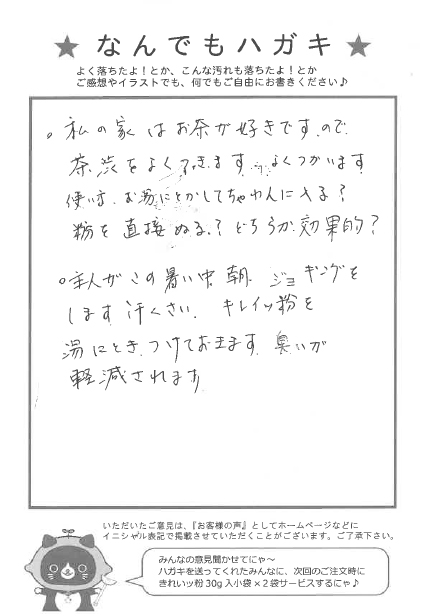 ★ なんでもハガキ ★
よく落ちたよ！とか、こんな汚れも落ちたよ！とか
ご感想やイラストでも、何でもご自由にお書きください♪
。私の家はお茶が好きです。ので、
茶渋をよくできます。 よくつかいます
使い方、お湯にとかしてちゃわんに入る？
粉を直接ぬる。？どちらが効果的？
。主人がこの暑い中 朝、ジョギングを
します 汗くさい。 キレイッ粉を
湯にとき、つけておきます。臭いが
軽減されます
いただいたご意見は、『お客様の声』としてホームページなどに
イニシャル表記で掲載させていただくことがございます。ご了承下さい。
みんなの意見聞かせてにゃ～
ハガキを送ってくれたみんなに、次回のご注文時に
きれいッ粉30g入小袋×2袋サービスするにゃ♪